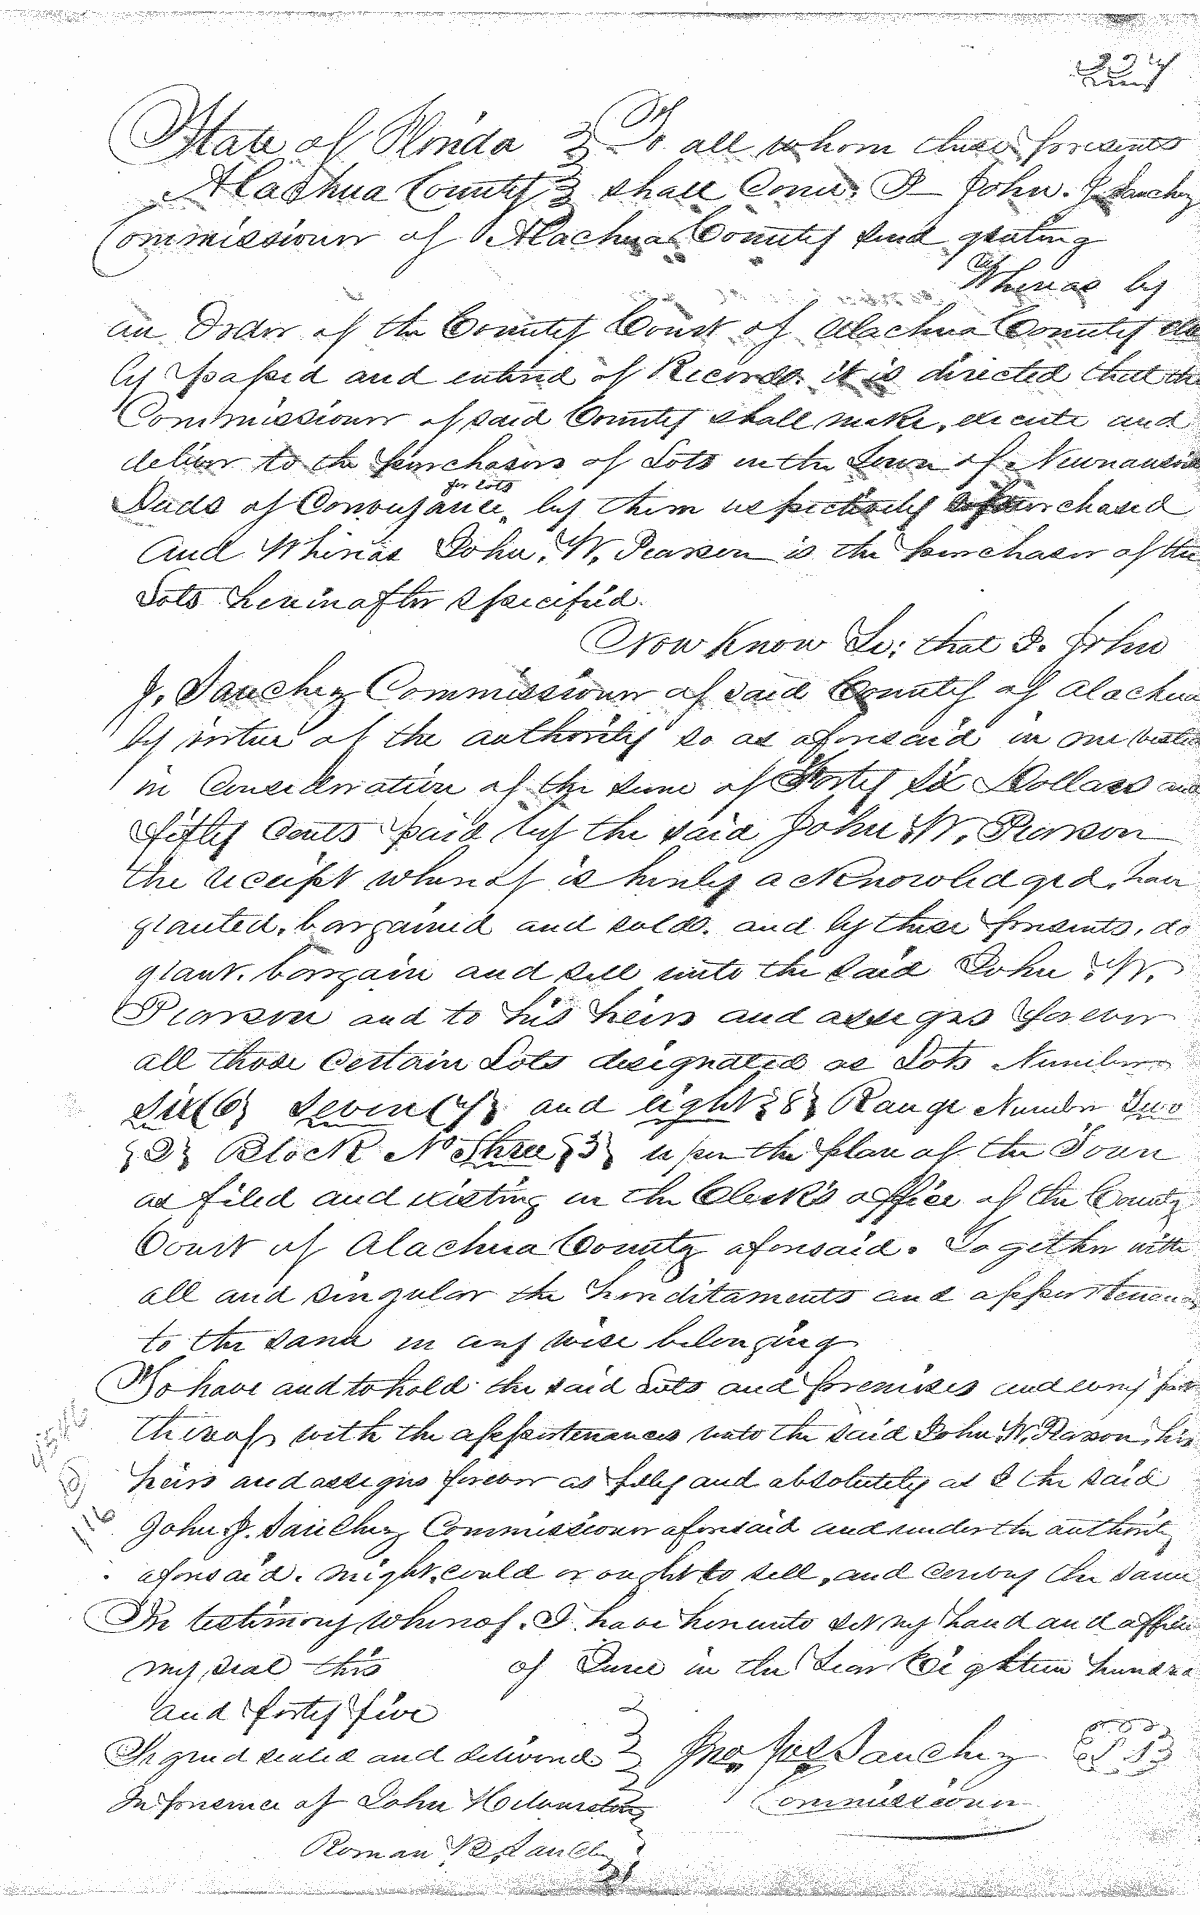 227
State of Florida } To all whom these presents
Alachua County } shall Come, I John. J. Sanchez
Commissioner of Alachua County send greeting
Whereas by
an Order of the County Court of Alachua County du
ly passed and entered of Record. it is directed that the
Commissioner of said County shall make, execute and
deliver to the purchasers of Lots in the Town of Newnansville
for lots
Deeds of Conveyance, by them respectively so purchased
And Whereas John. W. Pearson is the purchaser of the
Lots hereinafter specified.
Now Know Ye; that I. John
J. Sanchez Commissioner of said County of Alachua
by virtue of the authority so as aforesaid in me vested
in Consideration of the sum of Forty Six Dollars and
fifty Cents paid by the said John W. Pearson
the receipt whereof is hereby acknowledged, have
granted, bargained and sold. and by these presents, do
grant. bargain and sell unto the said John. W.
Pearson and to his heirs and assigns forever
all those certain Lots designated as Lots Number
Six {6} Seven {7} and eight {8} Range Number Two
{2} Block No Three {3} upon the plan of the Town
as filed and existing in the Clerk's office of the County
Court of Alachua County aforesaid. Together with
all and singular the hereditaments and appurtenances
to the same in any wise belonging
To have and to hold the said Lots and premises and every part
thereof with the appurtenances unto the said John. W. Pearson, his
heirs and assigns forever as fully and absolutely as I the said
John J. Sanchez Commissioner aforesaid and under the authority
aforesaid. might, could or ought to sell, and convey the same
In testimony whereof. I have hereunto set my hand and affixed
my seal this of June in the Year Eighteen hundred
and forty five
Signed sealed and delivered } Jno Jos Sanchez
In presence of John Commissioner
Roman B. Sanchez
116